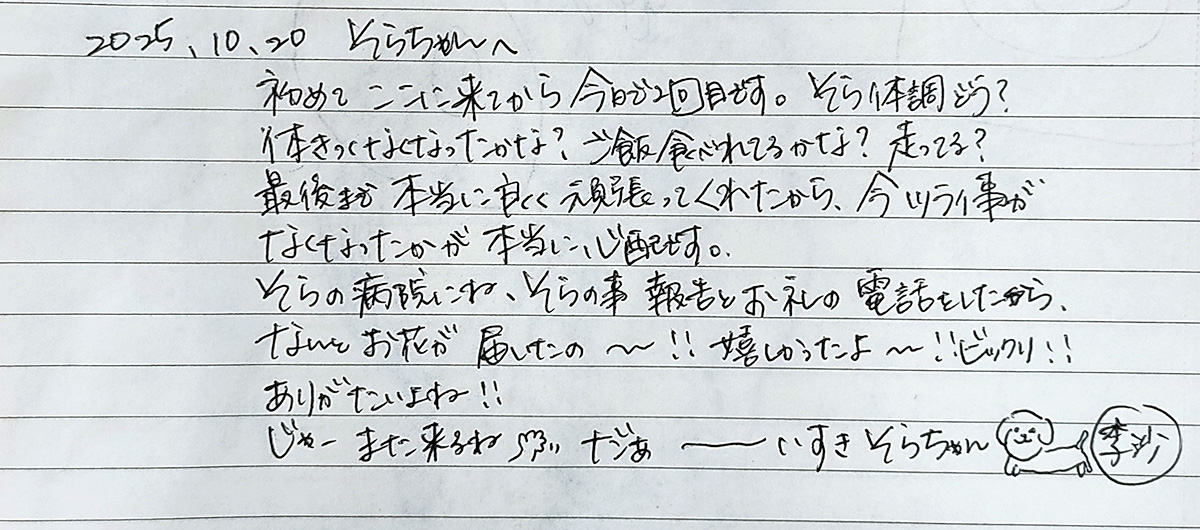 2025.10.20 そらちゃんへ
初めてここに来てから今日で2回目です。そら体調どう?
体きつくなくなったかな?ご飯食べれてるかな?走ってる?
最後まで本当に良く頑張ってくれたから、今ツライ事が
なくなったかが本当に心配です。
そらの病院にね、そらの事報告とお礼の電話をしたから、
ないとお花が届いたの〜!!嬉しかったよ〜!!ビックリ!!
ありがたいよね!!
じゃーまた来るね だぁ——いすきそらちゃん